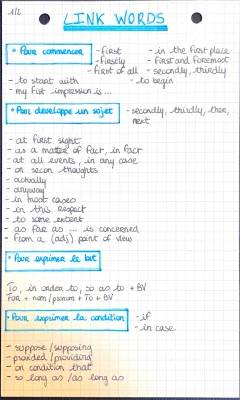 1/2
LINK WORDS
• Pour commencer
- first
- in the first place
- Firstly
- First and foremost
- First of all
- secondly, thirdly
- to start with
- to begin
- my fist impression is ...
• Pour developpe un sujet
- secondly, thirdly, then, next
- at first sight
- as a matter of fact, in fact
- at all events, in any case
- on secon thoughts
- actually
- anyway
- in most cases
- in this respect
- to some extent
- as far as ... is concerned
- From a (adj) point of view
• Pour exprimer le but
To, in order to, so as to + BV
For + nom/pronom + To + BV
• Pour exprimer la condition
- if
- in case
- suppose/supposing
- provided/providing
- on condition that
- so long as/as long as